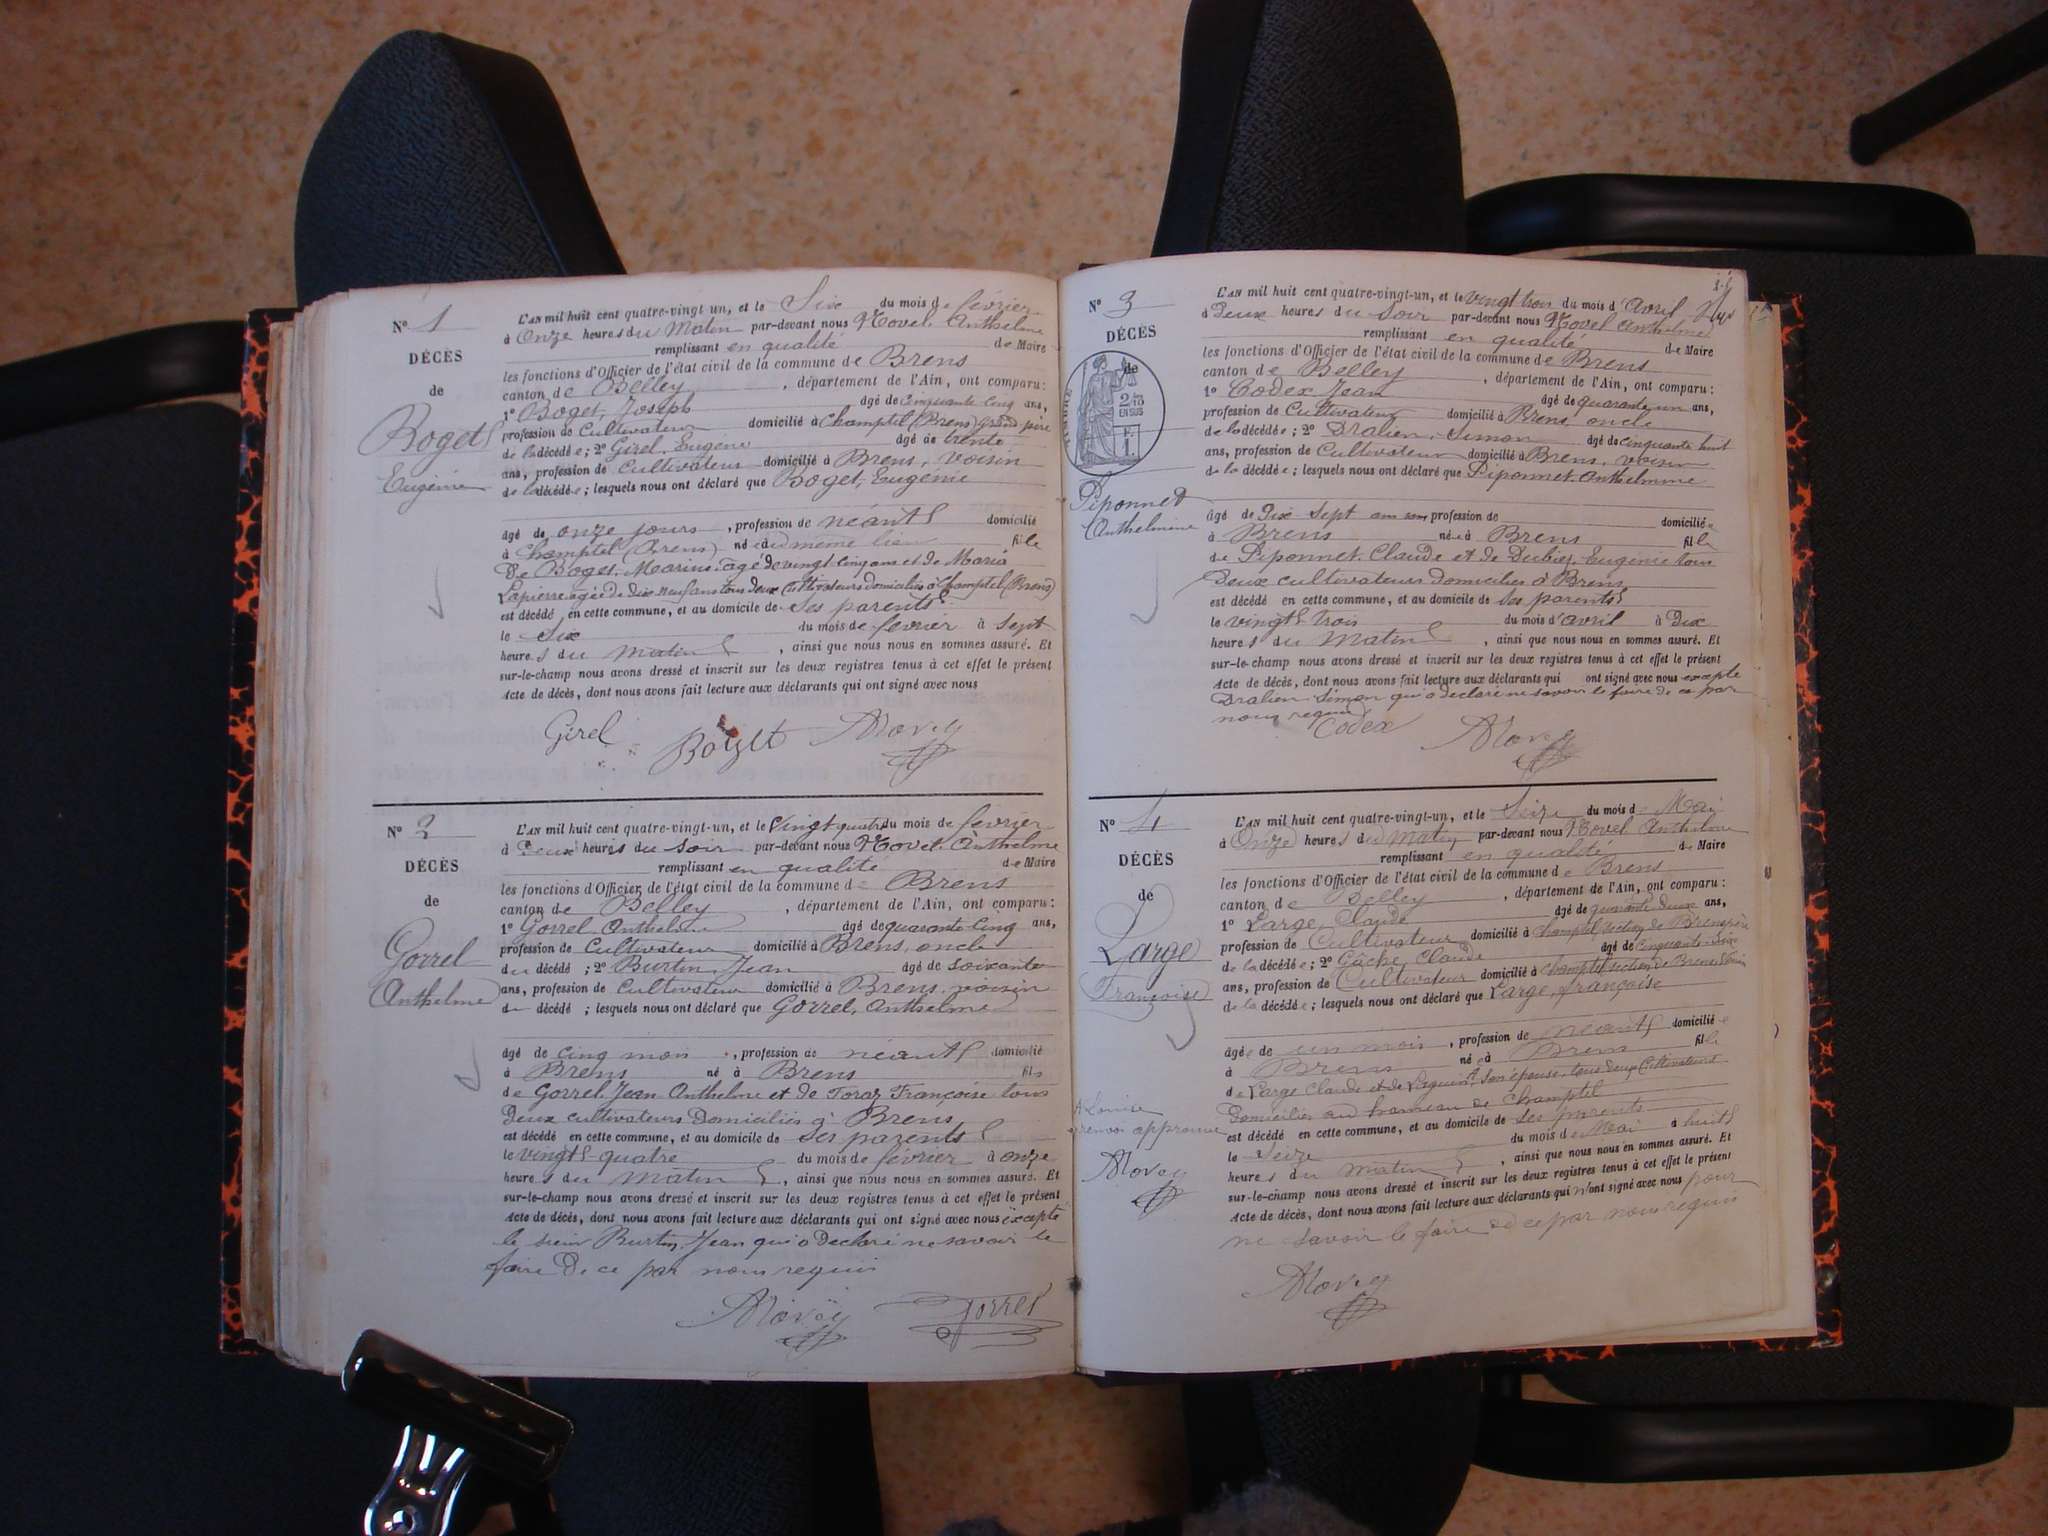 N° 1
DÉCÈS
de
Boget
Eugénie
L'AN mil huit cent quatre-vingt un, et le Six du mois de février
à Onze heures du Matin par-devant nous Anthelme
remplissant en qualité de Maire
les fonctions d'Officier de l'état civil de la commune de Brens
canton de Belley, département de l'Ain, ont comparu :
1° Boget, Joseph âgé de cinquante cinq ans,
profession de Cultivateur domicilié à Champtel (Brens) grand père
de la décédée ; 2° Girel, Eugène âgé de trente
ans, profession de Cultivateur domicilié à Brens, voisin
de la décédée ; lesquels nous ont déclaré que Boget, Eugénie
âgé de onze jours, profession de néant domicilié
à Champtel (Brens) née au même lieu fille
De Boget, Marius âgé de vingt cinq ans et de Maria
Lapierre agée de dix neuf ans tous deux Cultivateurs domiciliés à Champtel (Brens)
est décédé en cette commune, et au domicile de Ses parents
le Six du mois de fevrier à Sept
heures du matin, ainsi que nous nous en sommes assuré. Et
sur-le-champ nous avons dressé et inscrit sur les deux registres tenus à cet effet le présent
Acte de décès, dont nous avons fait lecture aux déclarants qui ont signé avec nous
Girel Boget
N° 2
DÉCÈS
de
Gorrel
Anthelme
L'AN mil huit cent quatre-vingt-un, et le Vingt quatre du mois de février
à Deux heures du soir par-devant nous Anthelme
remplissant en qualité de Maire
les fonctions d'Officier de l'état civil de la commune de Brens
canton de Belley, département de l'Ain, ont comparu :
1° Gorrel Anthelme âgé de quarante cinq ans,
profession de Cultivateur domicilié à Brens, oncle
du décédé ; 2° Burtin, Jean âgé de soixante
ans, profession de Cultivateur domicilié à Brens, voisin
du décédé ; lesquels nous ont déclaré que Gorrel, Anthelme
âgé de cinq mois, profession de néant domicilié
à Brens né à Brens fils
de Gorrel Jean Anthelme et de Toraz Françoise tous
Deux cultivateurs Domiciliés à Brens
est décédé en cette commune, et au domicile de Ses parents
le vingt quatre du mois de février à onze
heures du matin, ainsi que nous nous en sommes assuré. Et
sur-le-champ nous avons dressé et inscrit sur les deux registres tenus à cet effet le présent
Acte de décès, dont nous avons fait lecture aux déclarants qui ont signé avec nous excepté
le sieur Burtin, Jean qui a declaré ne savoir le
faire De ce par nous requis
Gorrel
N° 3
DÉCÈS
de
2/10 EN SUS
F. 1.
Piponnet
Anthelmine
L'AN mil huit cent quatre-vingt-un, et le vingt trois du mois d'Avril
à Deux heures du Soir par-devant nous Anthelme
remplissant en qualité de Maire
les fonctions d'Officier de l'état civil de la commune de Brens
canton de Belley, département de l'Ain, ont comparu :
1° Codex Jean âgé de quarante un ans,
profession de Cultivateur domicilié à Brens, oncle
de la décédée ; 2° Dralien, Simon âgé de cinquante huit
ans, profession de Cultivateur domicilié à Brens, voisin
de la décédée ; lesquels nous ont déclaré que Piponnet Anthelmine
âgé de Dix Sept ans profession de domiciliée
à Brens née à Brens fille
de Piponnet, Claude et de Eugénie tous
Deux cultivateurs Domiciliés à Brens
est décédé en cette commune, et au domicile de Ses parents
le vingt trois du mois d'avril à Dix
heures du Matin, ainsi que nous nous en sommes assuré. Et
sur-le-champ nous avons dressé et inscrit sur les deux registres tenus à cet effet le présent
Acte de décès, dont nous avons fait lecture aux déclarants qui ont signé avec nous excepté
Dralien Simon qui a déclaré ne savoir le faire de ce par
nous requis
Codex
N° 4
DÉCÈS
de
Large
Françoise
L'AN mil huit cent quatre-vingt-un, et le Seize du mois de Mai
à Onze heures du Matin par-devant nous Anthelme
remplissant en qualité de Maire
les fonctions d'Officier de l'état civil de la commune de Brens
canton de Belley, département de l'Ain, ont comparu :
1° Large, Claude âgé de quarante deux ans,
profession de Cultivateur domicilié à Champtel section de Brens père
de la décédée ; 2° Gâche, Claude âgé de Cinquante
ans, profession de Cultivateur domicilié à Champtel section de Brens Voisin
de la décédée ; lesquels nous ont déclaré que Large, françoise
âgée de un mois, profession de néant domiciliée
à Brens née à Brens fille
de Large Claude et de son épouse, tous deux Cultivateurs
Domiciliés au hameau de Champtel
est décédé en cette commune, et au domicile de Ses parents
le Seize du mois de Mai à huit
heures du matin, ainsi que nous nous en sommes assuré. Et
sur-le-champ nous avons dressé et inscrit sur les deux registres tenus à cet effet le présent
Acte de décès, dont nous avons fait lecture aux déclarants qui n'ont signé avec nous pour
ne savoir le faire de ce par nous requis
Louise
renvoi approuvé